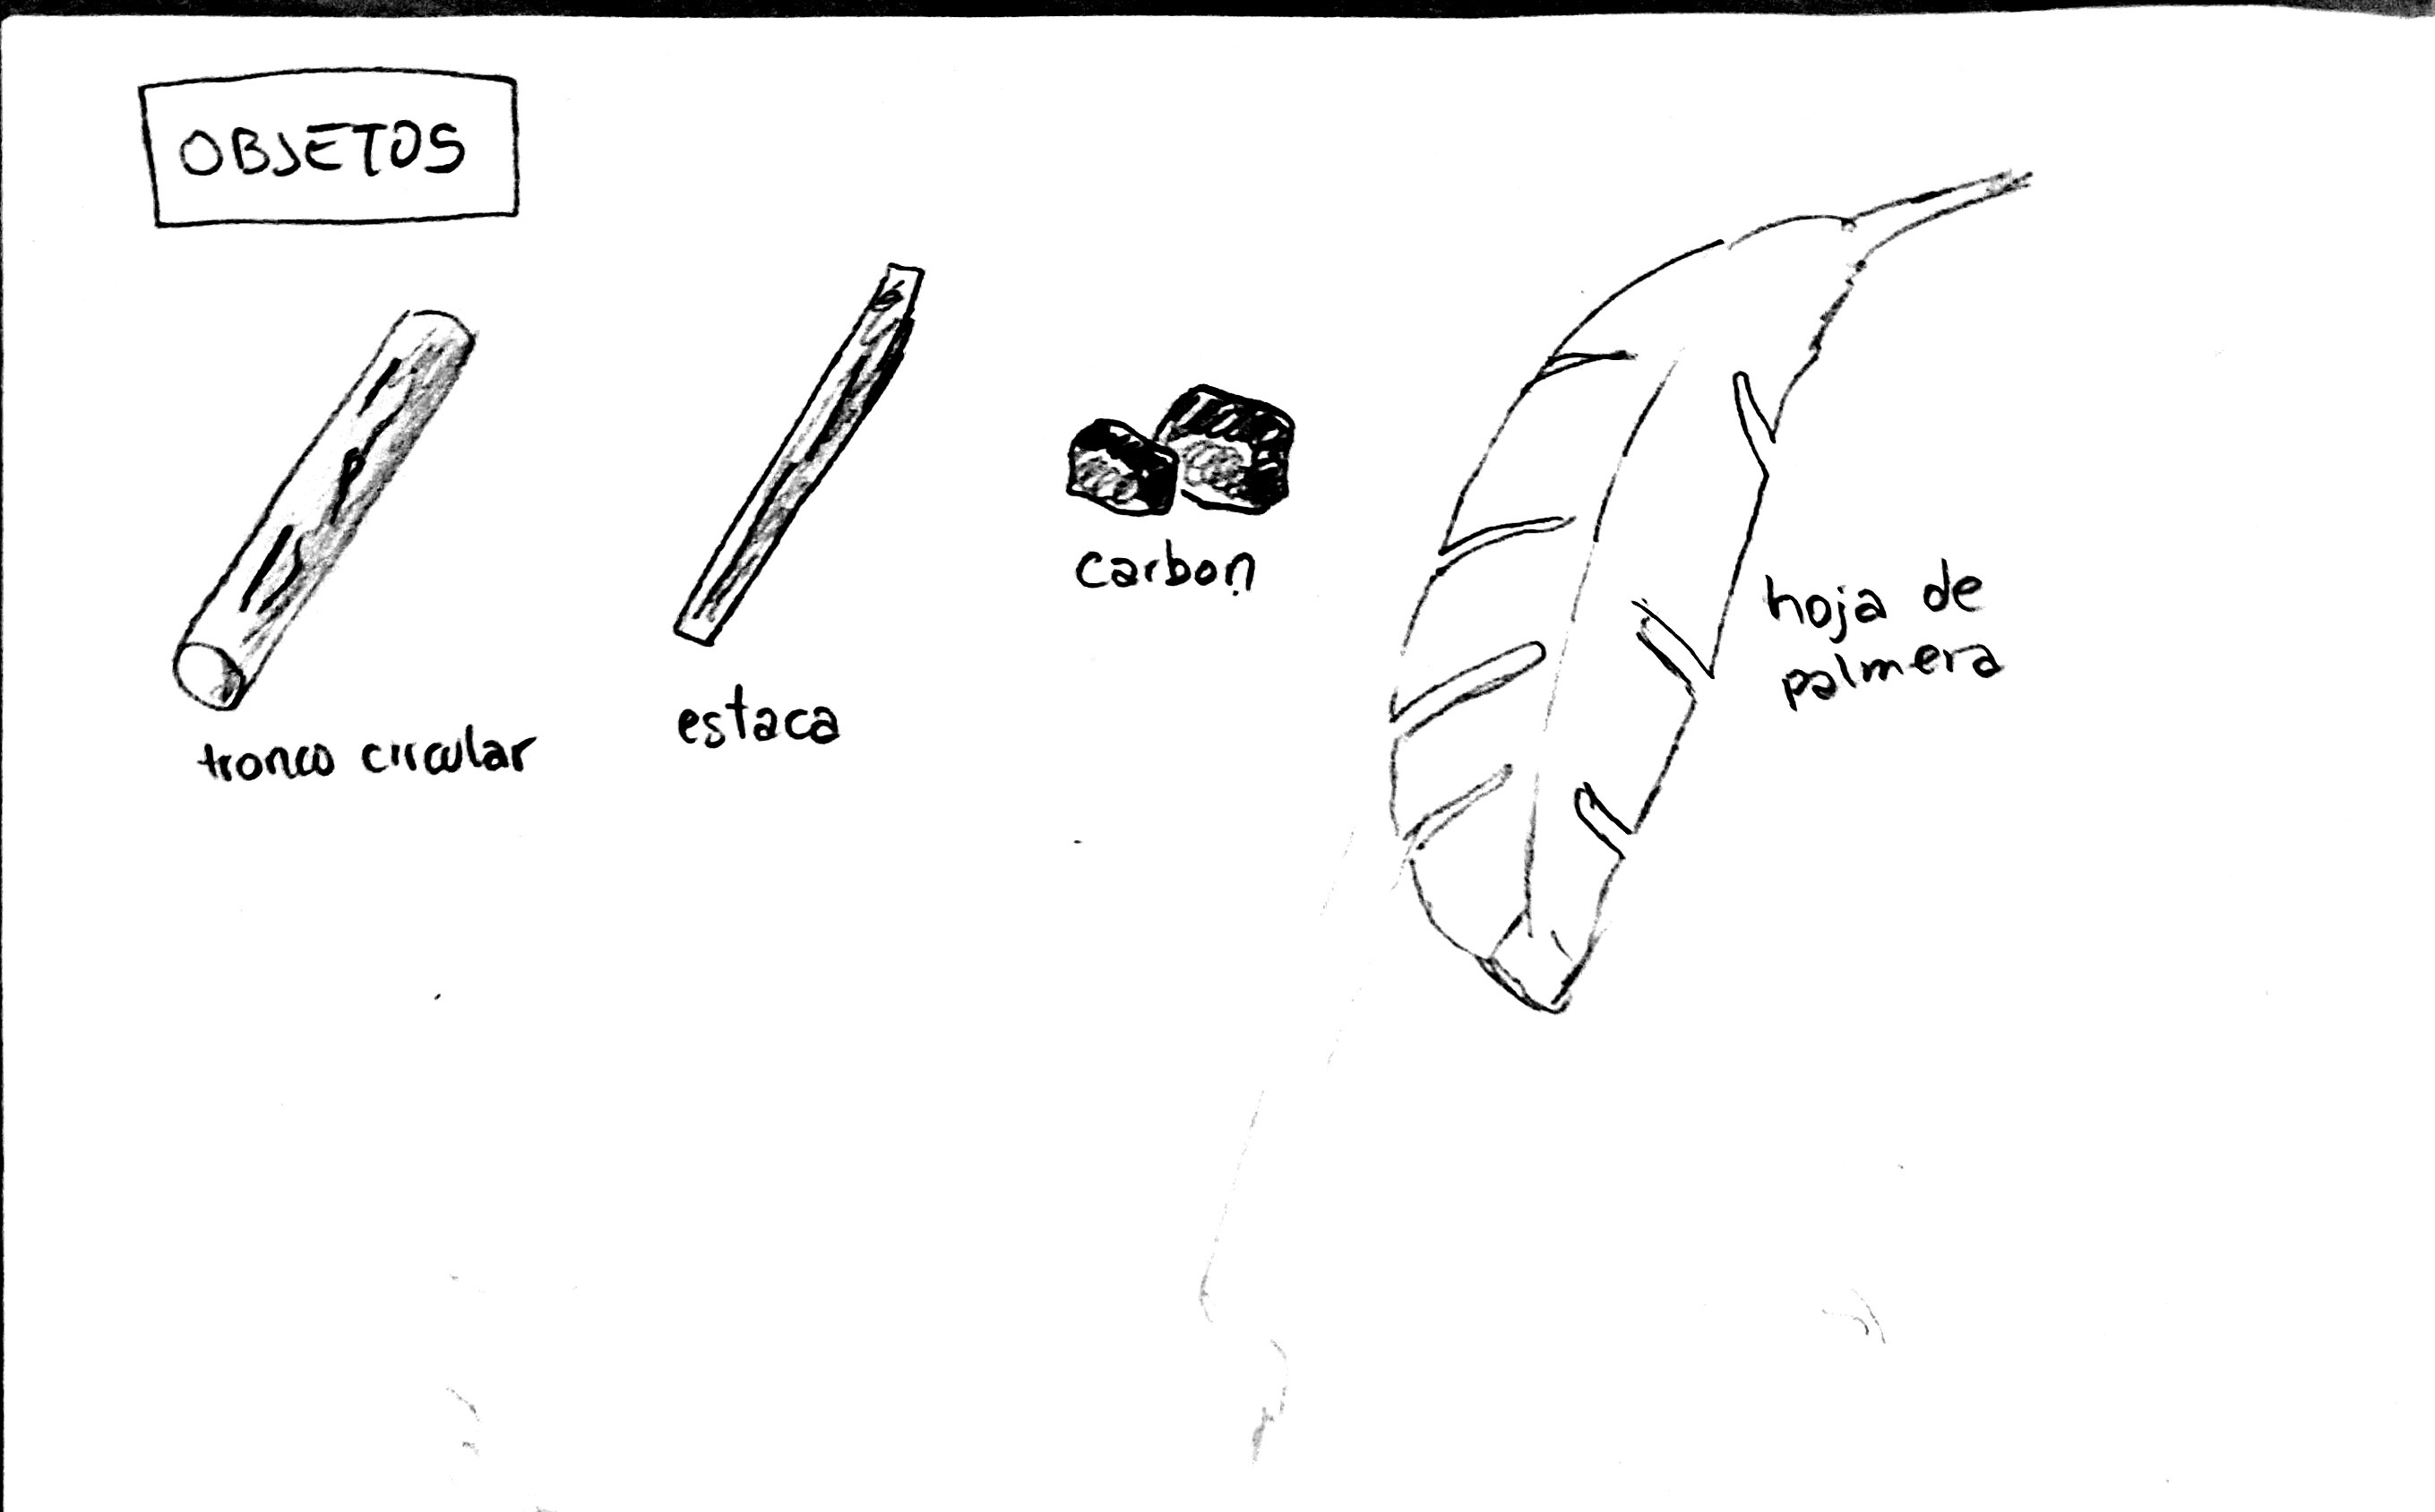 OBJETOS
tronco circular
estaca
carbon
hoja de
palmera